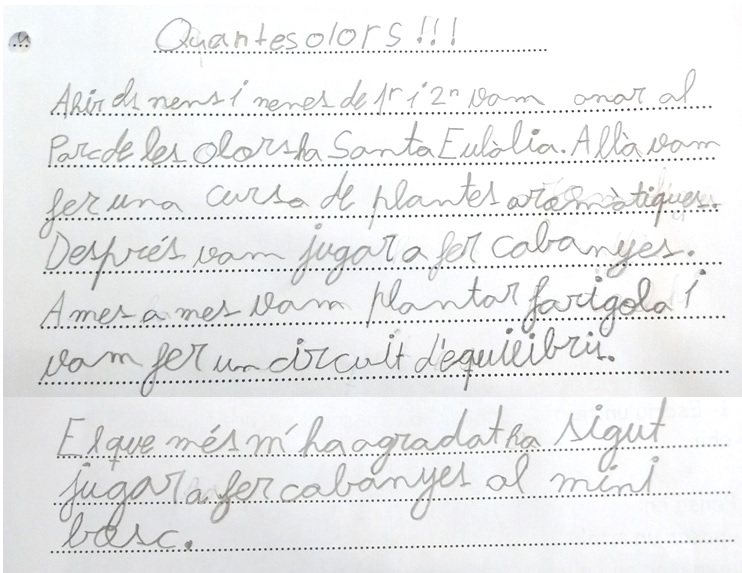 Quantes olors !!!
Ahir els nens i nenes de 1r i 2n vam anar al
Parc de les olors ha Santa Eulàlia. Allà vam
fer una cursa de plantes aromàtiques.
Després vam jugar a fer cabanyes.
A mes a mes vam plantar farigola i
vam fer un circuit d'equilibris.
El que més m'ha agradat ha sigut
jugar a fer cabanyes al mini
bosc.